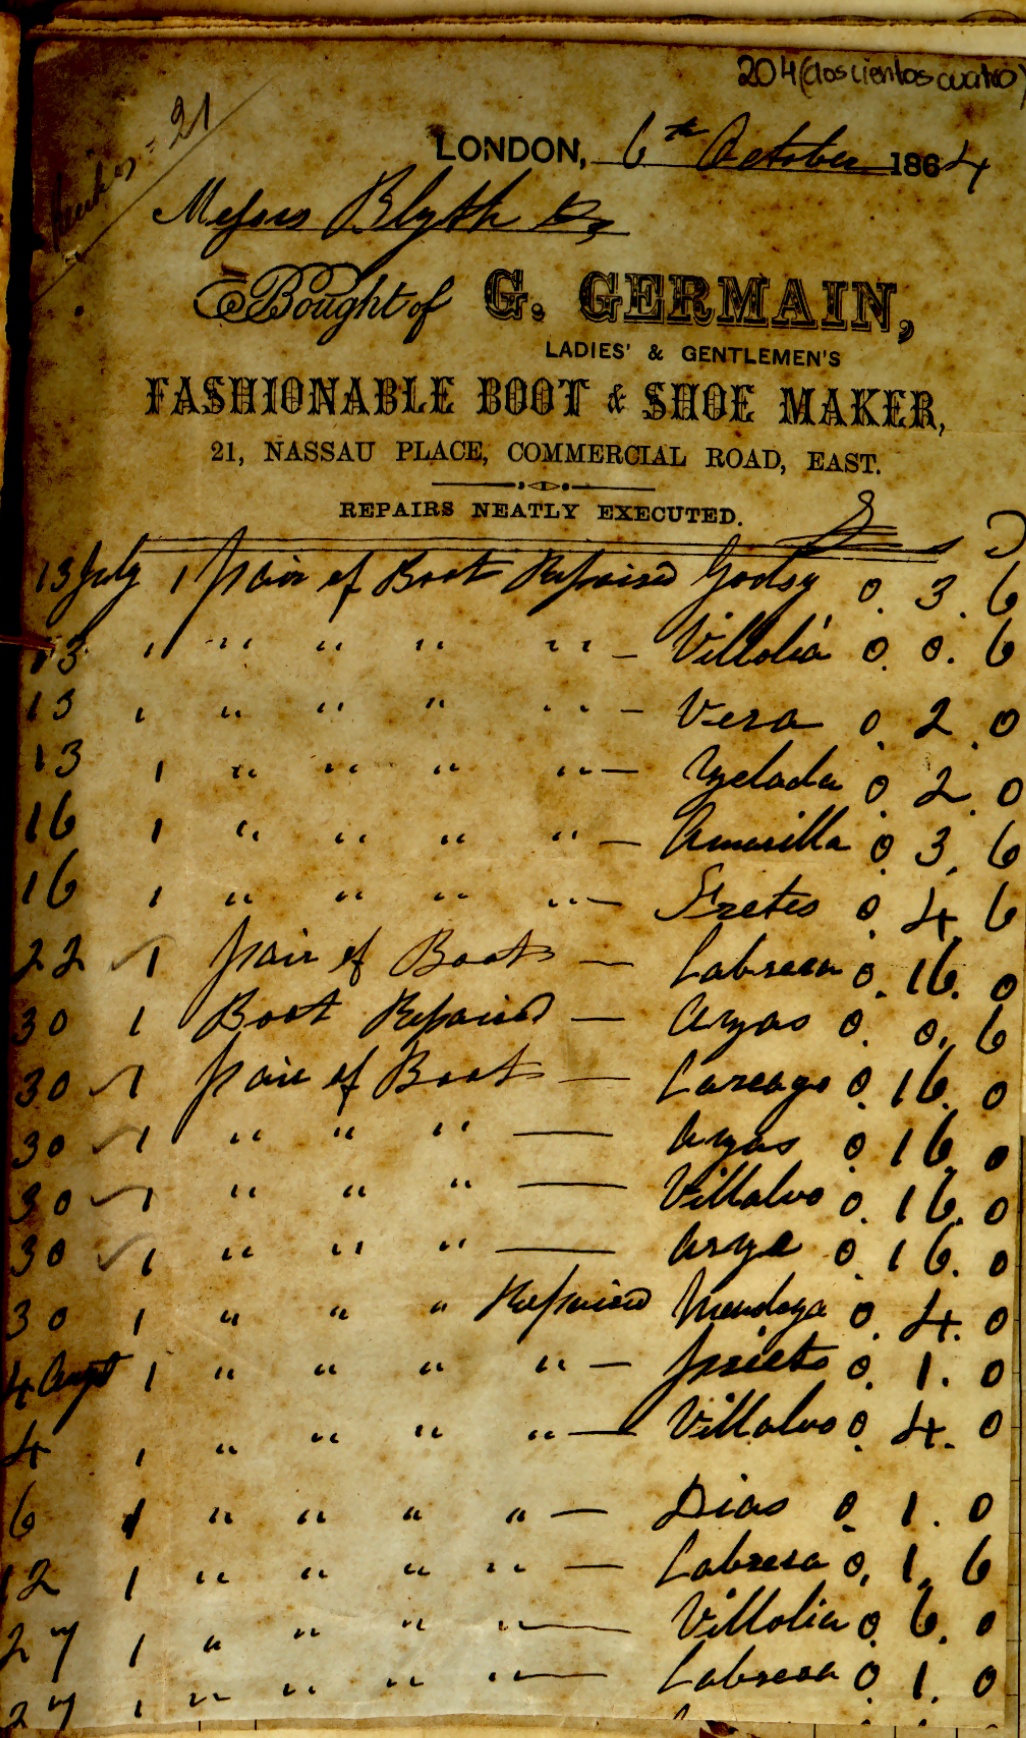 204 (doscientos cuatro)
21
LONDON, 6th October 1864
Messrs Blyth & Co
Bought of G. GERMAIN,
LADIES' & GENTLEMEN'S
FASHIONABLE BOOT & SHOE MAKER,
21, NASSAU PLACE, COMMERCIAL ROAD, EAST.
REPAIRS NEATLY EXECUTED.
£ s D
13 July 1 pair of Boot Repaired Godoy 0. 3. 6
13 " " " " " - Villolia 0. 0. 6
13 1 " " " " - Vera 0. 2. 0
13 1 " " " " - Gelada 0. 2. 0
16 1 " " " " - Amarilla 0. 3. 6
16 1 " " " " - Fretes 0. 4. 6
22 ✓ 1 pair of Boots - Cabrera 0. 16. 0
30 1 Boot Repaired - Ayas 0. 0. 6
30 ✓ 1 pair of Boots - 0. 16. 0
30 ✓ 1 " " " - Ayas 0. 16. 0
30 ✓ 1 " " " - Villalvo 0. 16. 0
30 ✓ 1 " " " - 0. 16. 0
30 1 " " " Repaired Mendoza 0. 4. 0
4 Augt 1 " " " " - Prieto 0. 1. 0
4 1 " " " " - Villalvo 0. 4. 0
6 1 " " " " - Dias 0. 1. 0
12 1 " " " " - Cabrera 0. 1. 6
27 1 " " " " - Villolia 0. 6. 0
27 1 " " " " - Cabrera 0. 1. 0